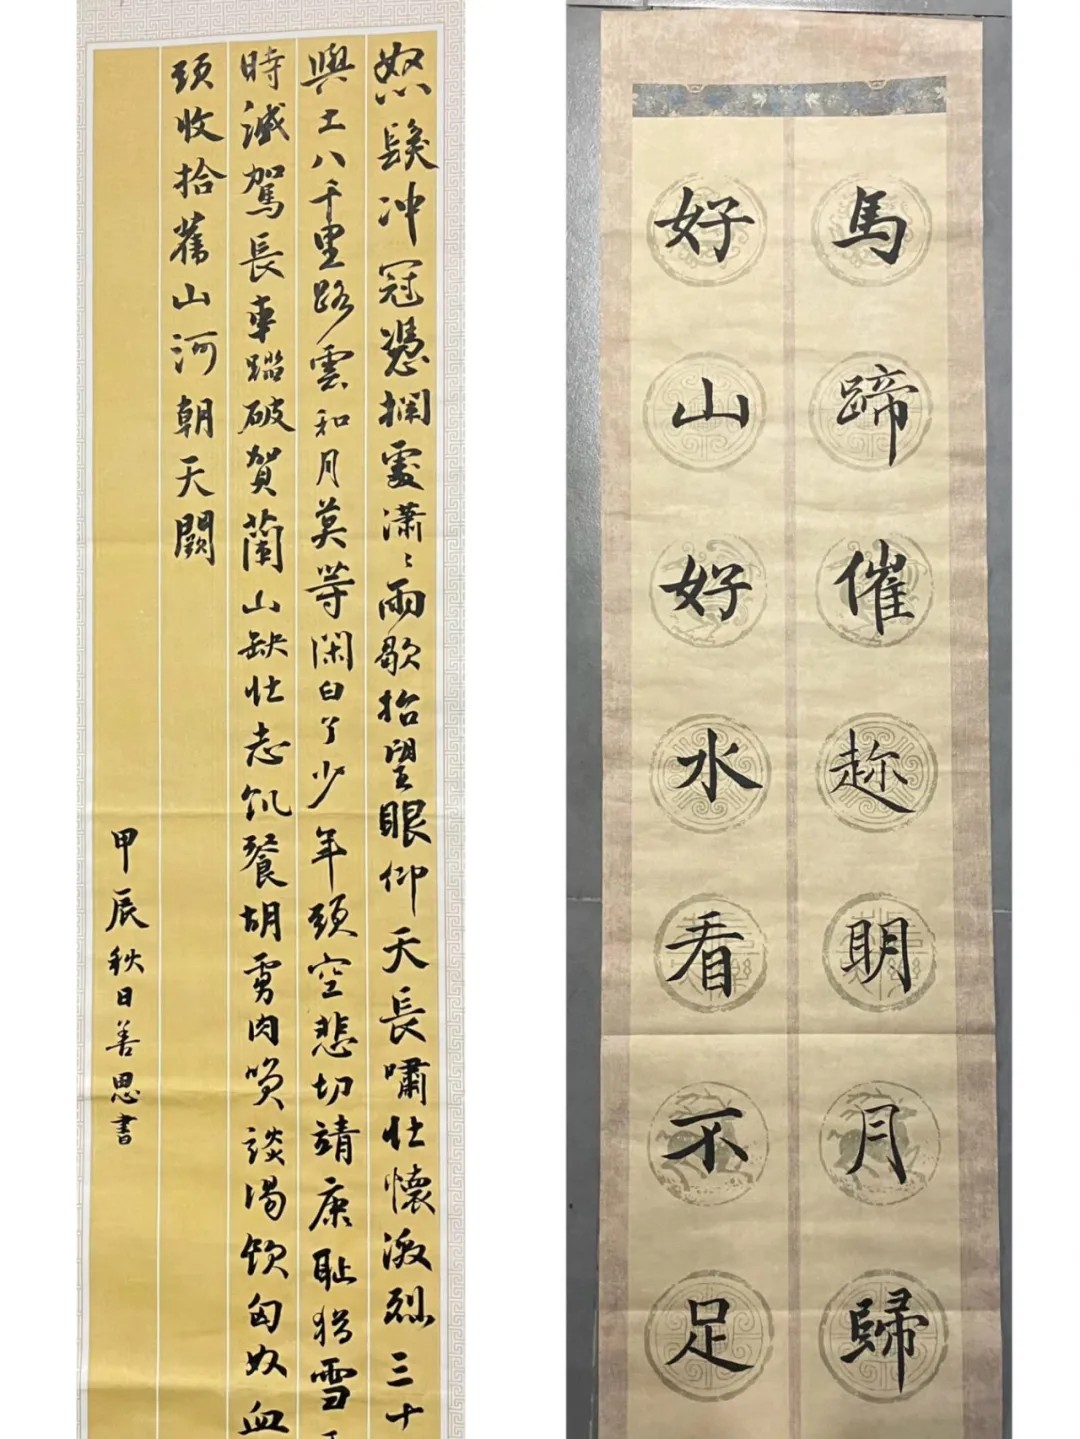 怒髮冲冠憑攔處瀟〻雨歇抬望眼仰天長嘯壮懷激烈三十
與土八千里路雲和月莫等閑白了少年頭空悲切靖康耻猶雪
時滅駕長車踏破賀蘭山缺壮志飢餐胡虜肉笑談渴飲匈奴血
頭收拾舊山河朝天闕
甲辰秋日善思書
馬蹄催趂眀月歸
好山好水看不足